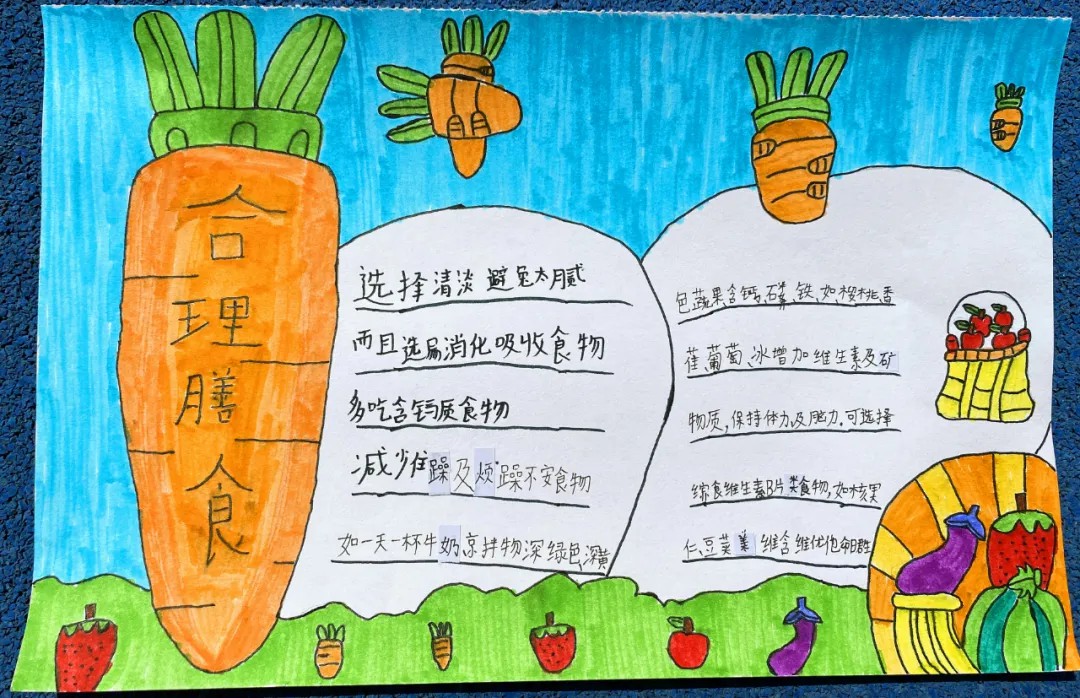 合理膳食
选择清淡避免太腻
而且选易消化吸收食物
多吃含钙质食物
减少焦躁及烦躁不安食物
如一天一杯牛奶凉拌物深绿色深黄
包蔬果含钙、磷、铁、如樱桃、香
蕉、葡萄、冰增加维生素及矿
物质,保持体力及脑力.可选择
综食维生素B片类食物,如核果
仁、豆荚 维含维